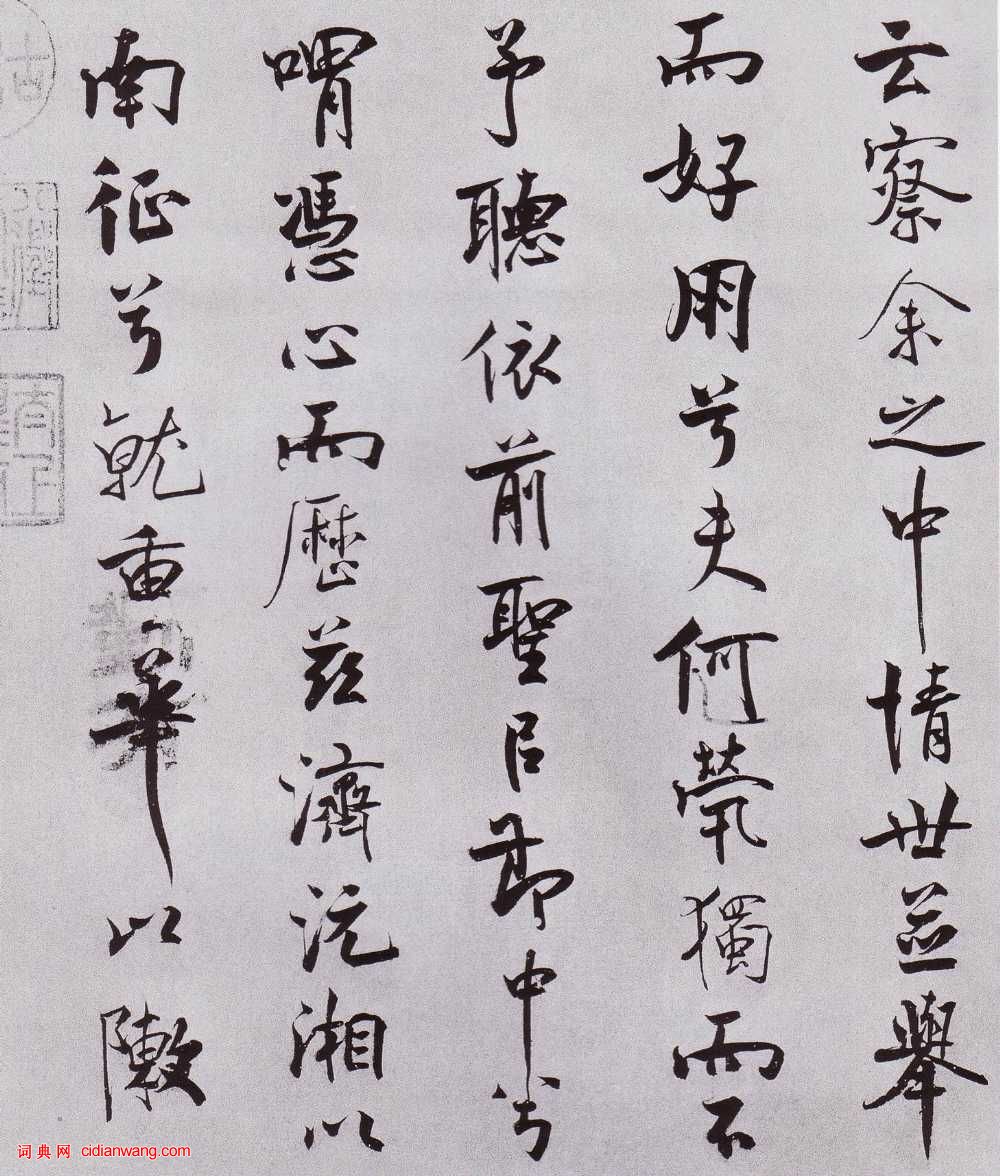 云察余之中情世並舉
而好朋兮夫何煢獨而不
予聽依前聖㠯節中兮
喟憑心而歷茲濟沅湘以
南征兮就重華以敶
词典网 cidianwang.com